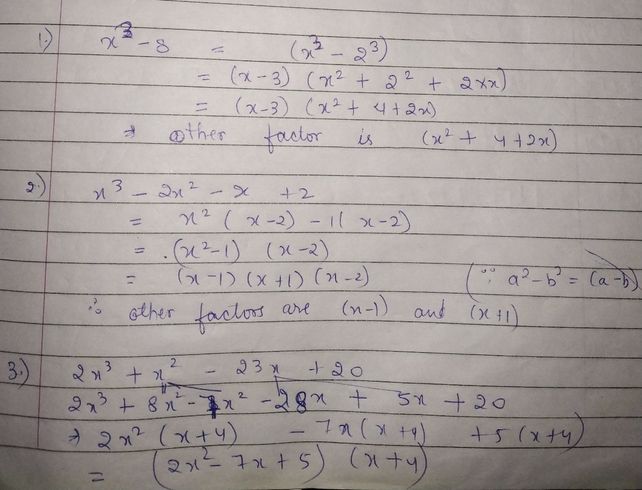 1.) x³ - 8 = (x³ - 2³)
= (x-3) (x² + 2² + 2×x)
= (x-3) (x² + 4+2x)
⇒ other factor is (x² + 4+2x)
2.) x³ - 2x² - x + 2
= x² ( x-2) - 1( x-2)
= (x²-1) (x-2)
= (x-1) (x+1) (x-2) (∵ a²-b² = (a-b)
∴ other factors are (x-1) and (x+1)
3.) 2x³ + x² - 23x + 20
2x³ + 8x² - 7x² - 28x + 5x + 20
⇒ 2x² (x+4) - 7x (x+4) + 5 (x+4)
= (2x² - 7x + 5) (x+4)